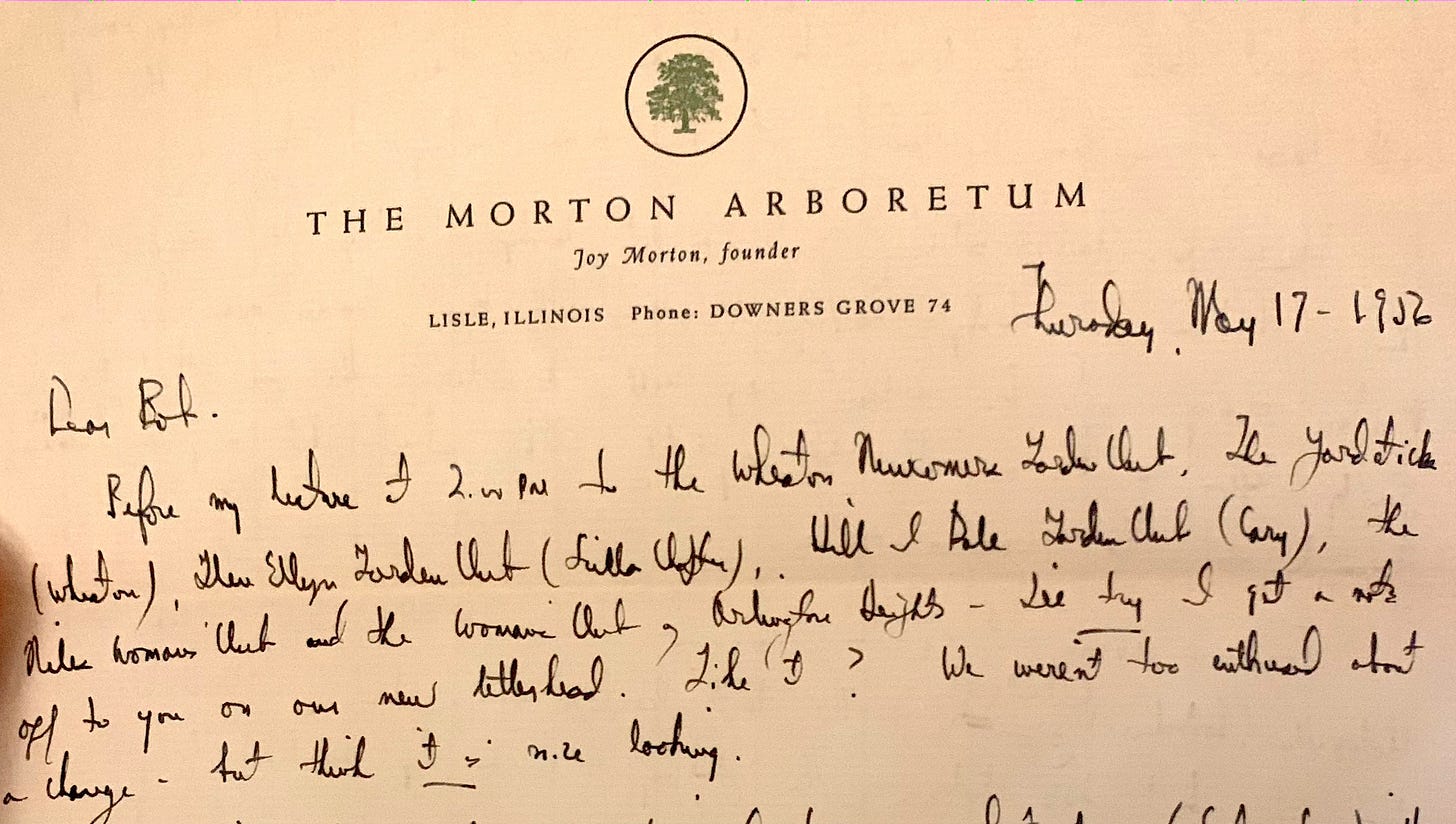 THE MORTON ARBORETUM
Joy Morton, founder
LISLE, ILLINOIS Phone: DOWNERS GROVE 74
Thursday, May 17 - 1956
Dear Bob.
Before my lecture at 2.00 PM to the Wheaton Newcomers Garden Club, The Yardsticks
(Wheaton), Glen Ellyn Garden Club (), Hill & Dale Garden Club (Cary), the
Niles Womans Club and the Womans Club of Arlington Heights - I'll try & get a note
off to you on our new letterhead. Like it? We weren't too enthused about
a change - but think it is nice looking.